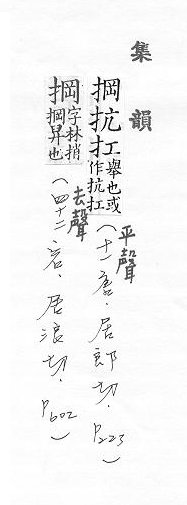 集韻
掆抗扛舉也或作抗扛平聲(十一唐.居郎切.P223)
掆字林捎掆昇也去聲(四十二宕.居浪切.P602)